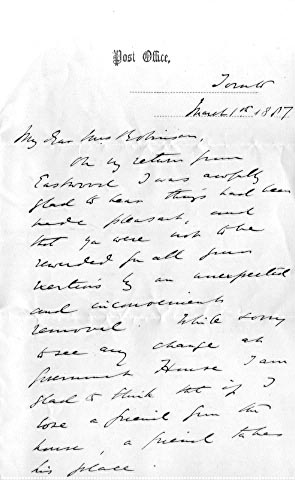 Post Office,
Toronto
March 1st 1887
My Dear Mrs Robinson,
On my return from
Eastwood I was awfully
glad to hear things had been
made pleasant, and
that you were not to be
rewarded for all your
exertions by an unexpected
and inconvenient
removal. While sorry
to see any change at
Government House I am
glad to think that if I
lose a friend from the
house, a friend takes
his place.